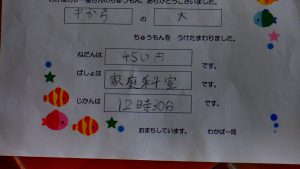 ありがとうございました。
中から の 大
ちゅうもんを うけたまわりました。
ねだんは 450円 です。
ばしょは 家庭科室 です。
じかんは 12時30分 です。
おまちしています。 わかば一同